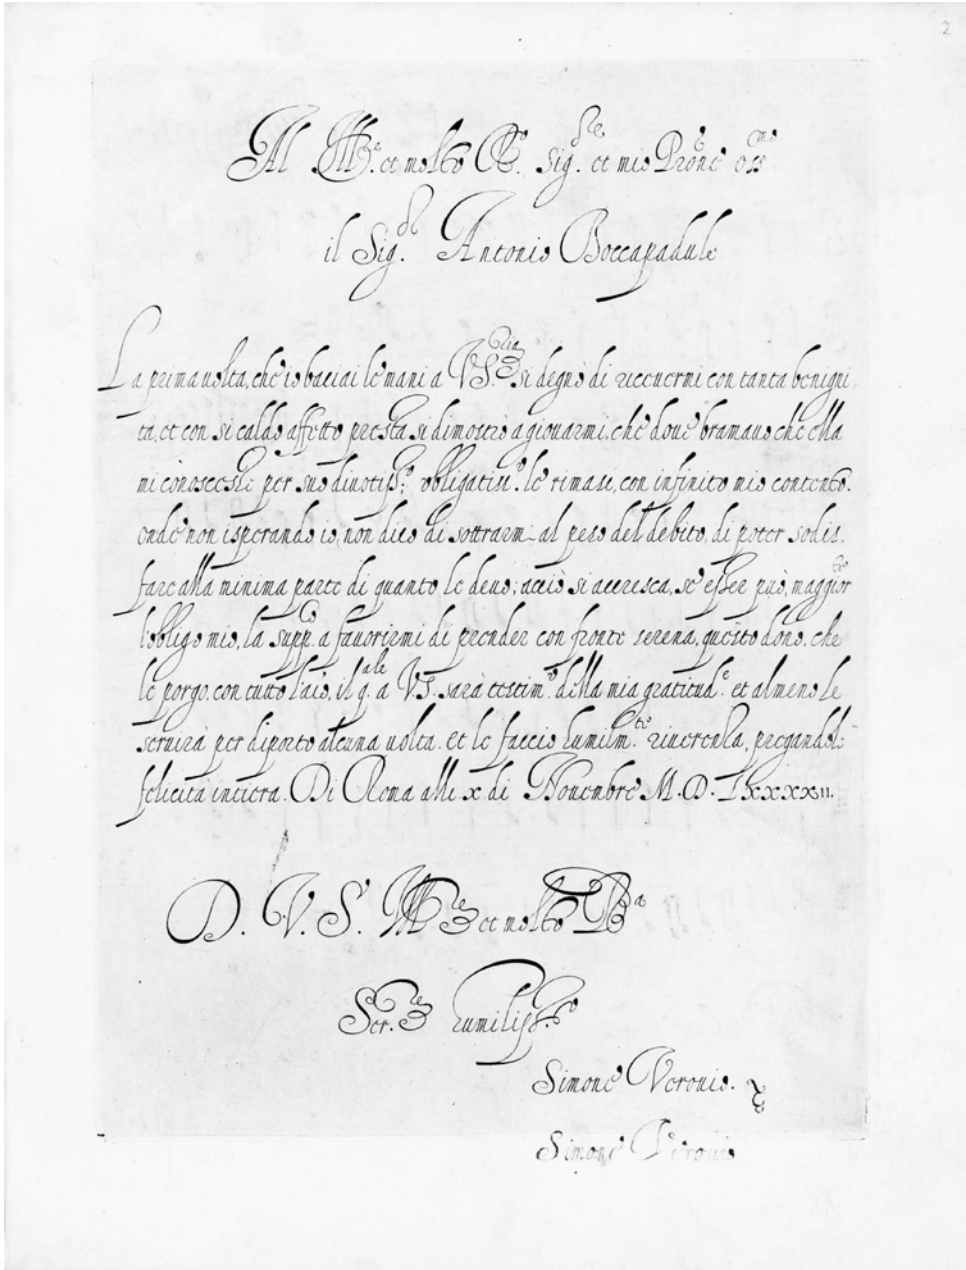 2
Al Ill.e et molto R.do Sig.re et mio Prone oss.mo
il Sig.or Antonio Boccapadule
La prima uolta, che io baciai le mani a V.S. Ill.re si degnò di riceuermi con tanta benigni
tà, et con si caldo affetto presta si dimostrò a giouarmi, che doue bramauo che ella
mi conoscesse per suo diuotiss.o obligatiss.o le rimasi, con infinito mio contento.
onde non isperando io, non dico di sottrarmi al peso del debito, di poter sodis.
fare alla minima parte di quanto le deuo; acciò si accresca, se esser può, maggior
l'obligo mio, la supp.co a fauorirmi di prender con fronte serena, questo dono, che
le porgo, con tutto l'aīo, il q.ale a V.S. sarà testim.o della mia gratitud.e et almeno le
seruirà per diporto alcuna uolta. et le faccio humilm.te riuerenza, pregandole
felicità intiera. Di Roma alli x. di Nouembre M.D.LXXXXII.
D. V. S. Ill.re et molto R.da
Ser.re humiliss.o
Simone Verouio.
Simone Verouio